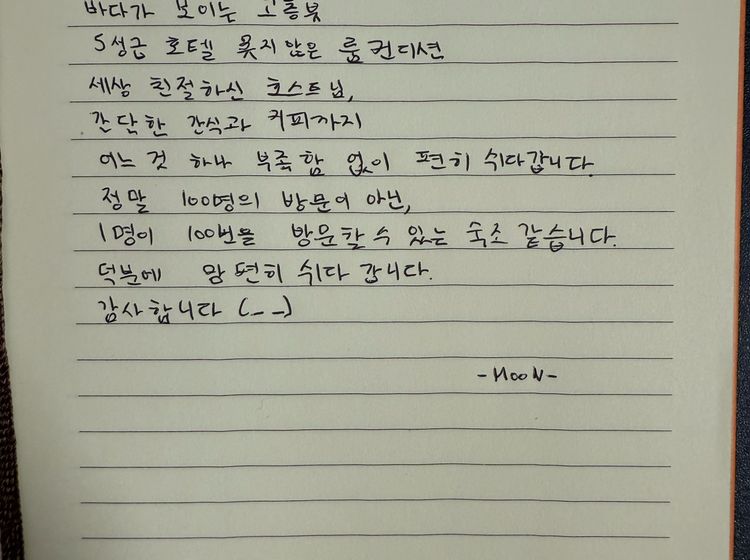 바다가 보이는 고층뷰
5성급 호텔 못지않은 룸컨디션
세상 친절하신 호스트님,
간단한 간식과 커피까지
어느 것 하나 부족함 없이 편히 쉬다갑니다.
정말 100명의 방문이 아닌,
1명이 100번을 방문할 수 있는 숙소 같습니다.
덕분에 맘 편히 쉬다 갑니다.
감사합니다 (_ _)
-MooN-